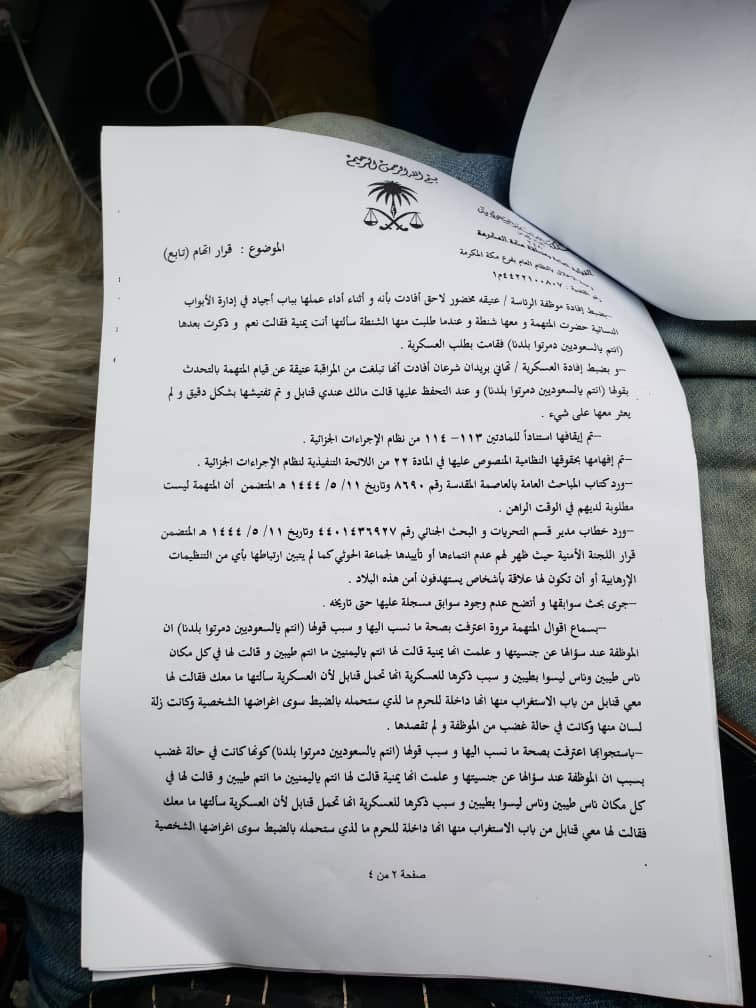 بسم الله الرحمن الرحيم
النيابة العامة بمنطقة مكة المكرمة
بالنظام العام بفرع مكة المكرمة
الموضوع : قرار اتهام (تابع)
رقم القضية : ٤٤٢٢١٠٠٨٠٧م١
–بضبط إفادة موظفة الرئاسة / عتيقه مخضور لاحق أفادت بأنه و أثناء أداء عملها بباب أجياد في إدارة الأبواب
النسائية حضرت المتهمة و معها شنطة و عندما طلبت منها الشنطة سألتها أنت يمنية فقالت نعم و ذكرت بعدها
(انتم يالسعوديين دمرتوا بلدنا) فقامت بطلب العسكرية .
–و بضبط إفادة العسكرية / تهاني بريدان شرعان أفادت أنها تبلغت من المراقبة عتيقة عن قيام المتهمة بالتحدث
بقولها (انتم يالسعوديين دمرتوا بلدنا) و عند التحفظ عليها قالت مالك عندي قنابل و تم تفتيشها بشكل دقيق و لم
يعثر معها على شيء .
–تم إيقافها استناداً للمادتين ١١٣– ١١٤ من نظام الإجراءات الجزائية .
–تم إفهامها بحقوقها النظامية المنصوص عليها في المادة ٢٢ من اللائحة التنفيذية لنظام الإجراءات الجزائية .
–ورد كتاب المباحث العامة بالعاصمة المقدسة رقم ٨٦٩٠ وتاريخ ١١/ ٥/ ١٤٤٤ هـ المتضمن أن المتهمة ليست
مطلوبة لديهم في الوقت الراهن .
–ورد خطاب مدير قسم التحريات و البحث الجنائي رقم ٤٤٠١٤٣٦٩٢٧ وتاريخ ١١/ ٥/ ١٤٤٤ هـ المتضمن
قرار اللجنة الأمنية حيث ظهر لهم عدم انتماءها أو تأييدها لجماعة الحوثي كما لم يتبين ارتباطها بأي من التنظيمات
الإرهابية أو أن تكون لها علاقة بأشخاص يستهدفون أمن هذه البلاد .
–جرى بحث سوابقها و أتضح عدم وجود سوابق مسجلة عليها حتى تاريخه .
–بسماع اقوال المتهمة مروة اعترفت بصحة ما نسب اليها و سبب قولها (انتم يالسعوديين دمرتوا بلدنا) ان
الموظفة عند سؤالها عن جنسيتها و علمت انها يمنية قالت لها انتم ياليمنيين ما انتم طيبين و قالت لها في كل مكان
ناس طيبين وناس ليسوا بطيبين و سبب ذكرها للعسكرية انها تحمل قنابل لأن العسكرية سألتها ما معك فقالت لها
معي قنابل من باب الاستغراب منها انها داخلة للحرم ما لذي ستحمله بالضبط سوى اغراضها الشخصية وكانت زلة
لسان منها وكانت في حالة غضب من الموظفة و لم تقصدها .
–باستجوابها اعترفت بصحة ما نسب اليها و سبب قولها (انتم يالسعوديين دمرتوا بلدنا) كونها كانت في حالة غضب
بسبب ان الموظفة عند سؤالها عن جنسيتها و علمت انها يمنية قالت لها انتم ياليمنيين ما انتم طيبين و قالت لها في
كل مكان ناس طيبين وناس ليسوا بطيبين و سبب ذكرها للعسكرية انها تحمل قنابل لأن العسكرية سألتها ما معك
فقالت لها معي قنابل من باب الاستغراب منها انها داخلة للحرم ما لذي ستحمله بالضبط سوى اغراضها الشخصية
صفحة ٢ من ٤